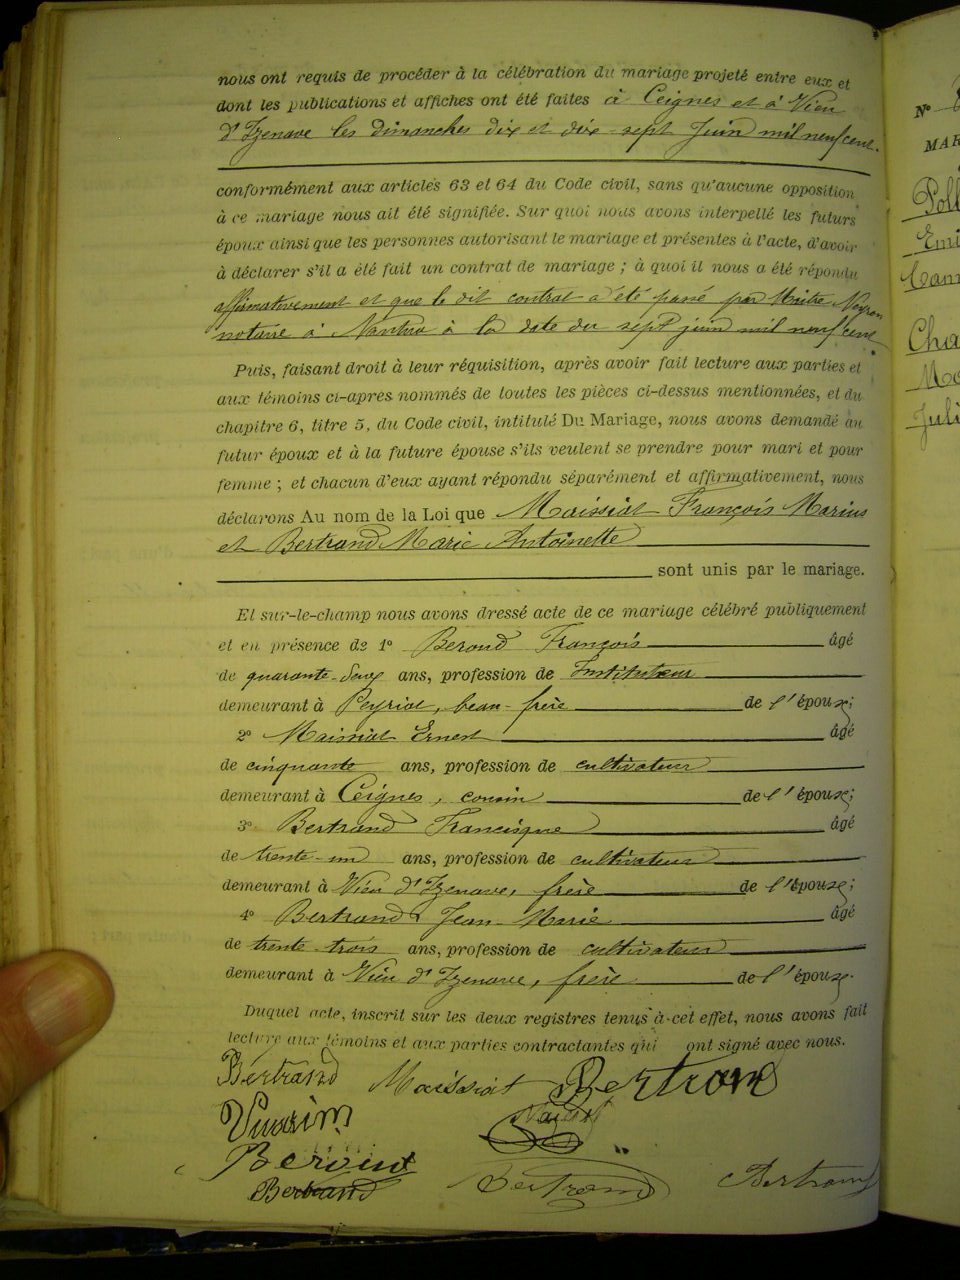 nous ont requis de procéder à la célébration du mariage projeté entre eux et
dont les publications et affiches ont été faites à Ceignes et à Vieu
d'Izenave les dimanches dix et dix-sept Juin mil neuf cent.
conformément aux articles 63 et 64 du Code civil, sans qu'aucune opposition
à ce mariage nous ait été signifiée. Sur quoi nous avons interpellé les futurs
époux ainsi que les personnes autorisant le mariage et présentes à l'acte, d'avoir
à déclarer s'il a été fait un contrat de mariage ; à quoi il nous a été répondu
affirmativement et que le dit contrat a été passé par Maitre Neyron
notaire à Nantua à la date du sept juin mil neuf cent.
Puis, faisant droit à leur réquisition, après avoir fait lecture aux parties et
aux témoins ci-après nommés de toutes les pièces ci-dessus mentionnées, et du
chapitre 6, titre 5, du Code civil, intitulé Du Mariage, nous avons demandé au
futur époux et à la future épouse s'ils veulent se prendre pour mari et pour
femme ; et chacun d'eux ayant répondu séparément et affirmativement, nous
déclarons Au nom de la Loi que Maissiat François Marius
et Bertrand Marie Antoinette
sont unis par le mariage.
Et sur-le-champ nous avons dressé acte de ce mariage célébré publiquement
et en présence de 1° Beroud François âgé
de quarante-deux ans, profession de Instituteur
demeurant à Peyriat, beau-frère de l'épouse;
2° Maissiat Ernest âgé
de cinquante ans, profession de cultivateur
demeurant à Ceignes, cousin de l'épouse;
3° Bertrand Francisque âgé
de trente-un ans, profession de cultivateur
demeurant à Vieu d'Izenave, frère de l'épouse;
4° Bertrand Jean-Marie âgé
de trente-trois ans, profession de cultivateur
demeurant à Vieu d'Izenave, frère de l'épouse.
Duquel acte, inscrit sur les deux registres tenus à cet effet, nous avons fait
lecture aux témoins et aux parties contractantes qui ont signé avec nous.
Bertrand Maissiat Bertrand
Vuarin
Beroud
Bertrand Bertrand Bertrand
N°
MAR
Poll
Emi
Cam
Cha
Ma
Juli